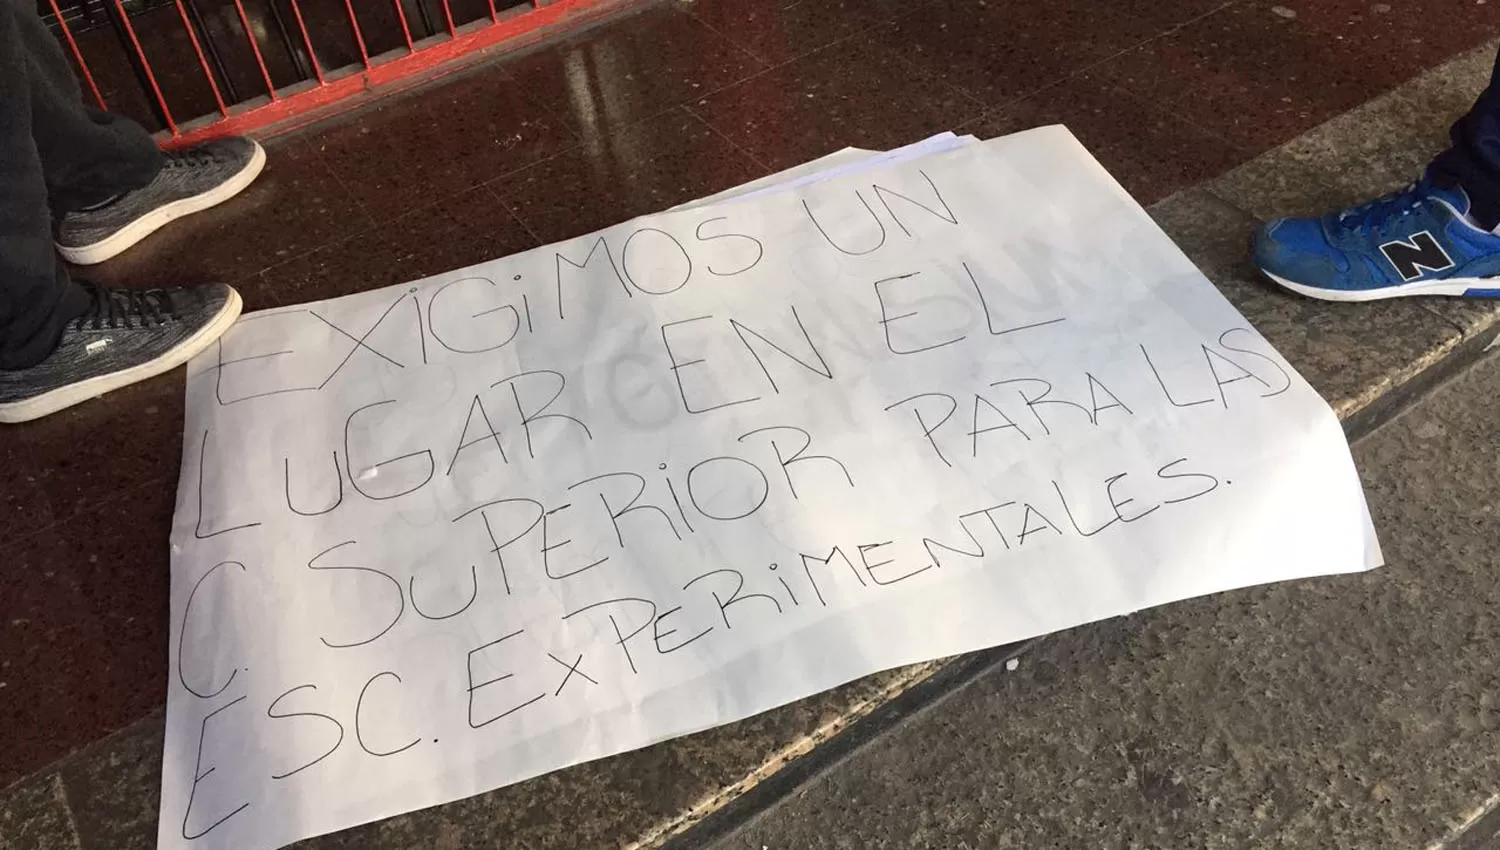 EXIGIMOS UN
LUGAR EN EL
C. SUPERIOR PARA LAS
ESC. EXPERIMENTALES.
N